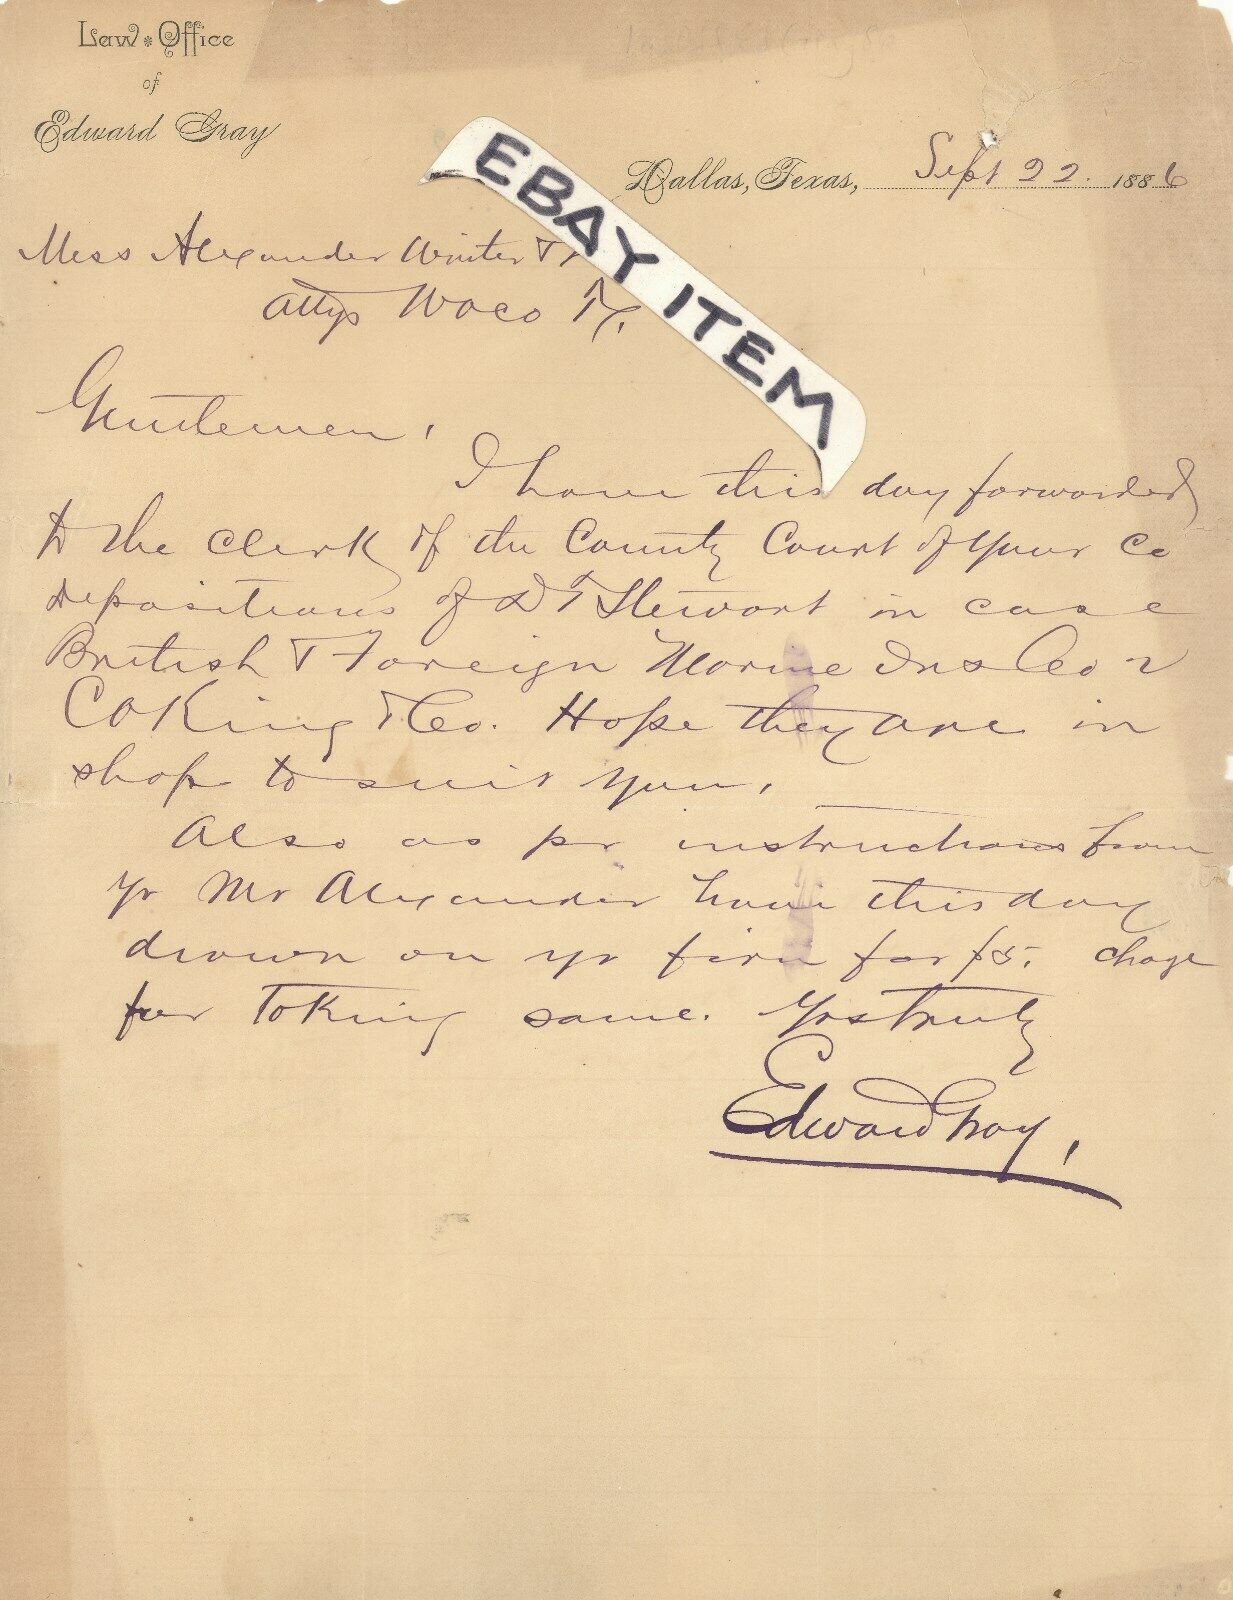 Law Office
of
Edward Gray
Dallas, Texas, Sept 22. 1886
EBAY ITEM
Mess Alexander Winter &
Attys Waco Tx.
Gentlemen,
I have this day forwarded
to the Clerk of the County Court of your Co
depositions of D T Stewart in case
British & Foreign Marine Ins Co v
C A King & Co. Hope they are in
shape to suit you,
Also as pr instructions from
yr Mr Alexander have this day
drawn on yr firm for $5. chage
for Taking same. Yrs truly
Edward Gray,